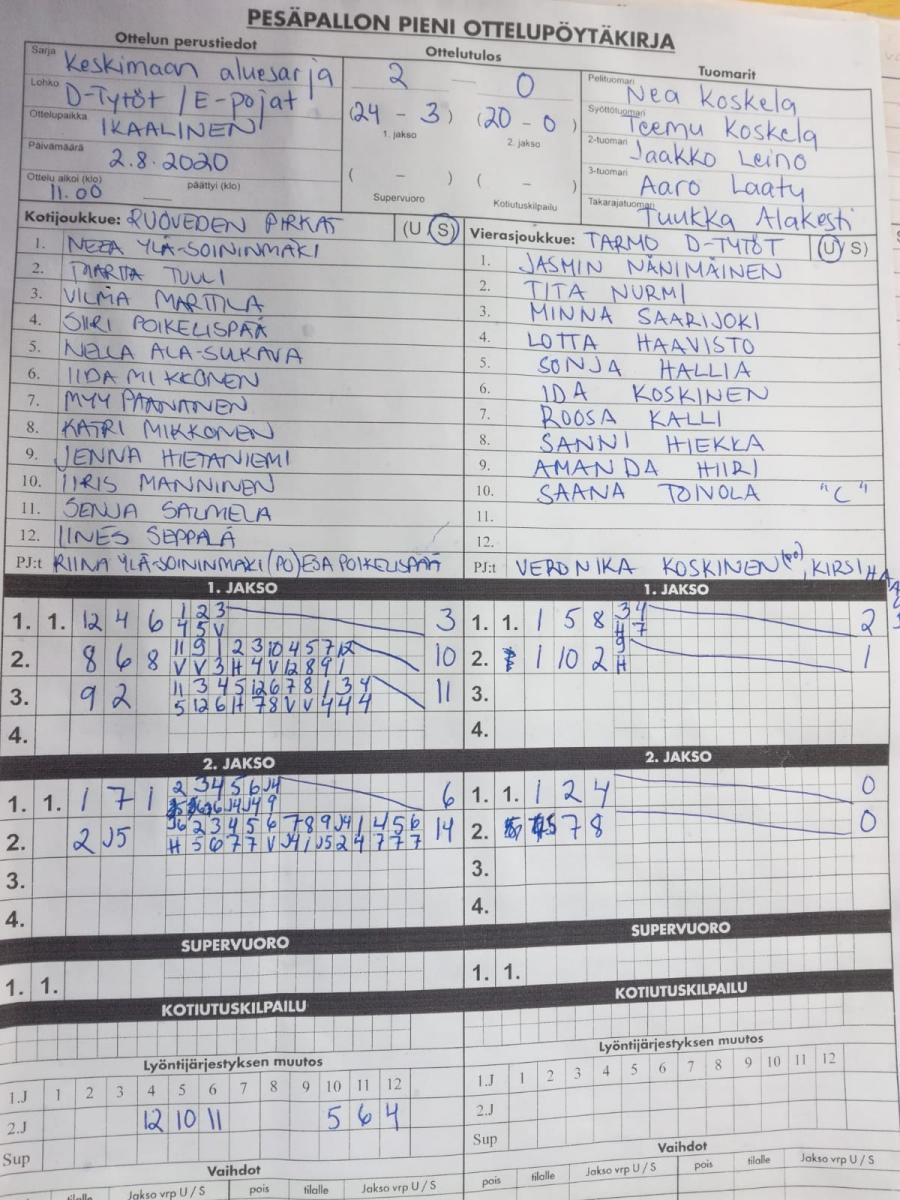 PESÄPALLON PIENI OTTELUPÖYTÄKIRJA
Ottelun perustiedot
Sarja Keskimaan aluesarja
Lohko D-Tytöt / E-pojat
Ottelupaikka IKAALINEN
Päivämäärä 2.8.2020
Ottelu alkoi (klo) 11.00 päättyi (klo)
Ottelutulos
2 — 0
(24 - 3) (20 - 0)
1. jakso 2. jakso
( - ) ( - )
Supervuoro Kotiutuskilpailu
Tuomarit
Pelituomari Nea Koskela
Syöttötuomari Teemu Koskela
2-tuomari Jaakko Leino
3-tuomari Aaro Laaty
Takarajatuomari Tuukka Alakesti
Kotijoukkue: RUOVEDEN PIRKAT (U S)
1. NEEA YLÄ-SOININMÄKI
2. MARTTA TULLI
3. VILMA MARTTILA
4. SIIRI POIKELISPÄÄ
5. NELLA ALA-SUKAVA
6. IIDA MIKKONEN
7. MYY PAANANEN
8. KATRI MIKKONEN
9. JENNA HIETANIEMI
10. IIRIS MANNINEN
11. SENJA SALMELA
12. IINES SEPPÄLÄ
PJ:t RIINA YLÄ-SOININMÄKI (PO) ESA POIKELISPÄÄ
Vierasjoukkue: TARMO D-TYTÖT (U S)
1. JASMIN NÄNIMÄINEN
2. TITA NURMI
3. MINNA SAARIJOKI
4. LOTTA HAAVISTO
5. SONJA HALLIA
6. IDA KOSKINEN
7. ROOSA KALLI
8. SANNI HIEKKA
9. AMANDA HIIRI
10. SAANA TOIVOLA "C"
11.
12.
PJ:t VERONIKA KOSKINEN (PO), KIRSI
1. JAKSO
1. 1. 12 4 6 1 2 3 3
4 5 V
2. 8 6 8 11 9 1 2 3 10 4 5 7 12 10
V V 3 H 4 V 12 8 9 1
3. 9 2 11 3 4 5 12 6 7 8 1 3 4 11
5 12 6 H 7 8 V V 4 4 4
4.
1. JAKSO
1. 1. 1 5 8 3 4 2
H 7
2. 1 10 2 9 1
H
3.
4.
2. JAKSO
1. 1. 1 7 1 2 3 4 5 6 J4 6
J4 J4 9
2. 2 J5 J6 2 3 4 5 6 7 8 9 J4 1 4 5 6 14
H 5 6 7 7 V J4 1 J5 2 4 7 7 7
3.
4.
2. JAKSO
1. 1. 1 2 4 0
2. 5 7 8 0
3.
4.
SUPERVUORO
1. 1.
SUPERVUORO
1. 1.
KOTIUTUSKILPAILU
KOTIUTUSKILPAILU
Lyöntijärjestyksen muutos
1.J 1 2 3 4 5 6 7 8 9 10 11 12
2.J 12 10 11 5 6 4
Sup
Lyöntijärjestyksen muutos
1.J 1 2 3 4 5 6 7 8 9 10 11 12
2.J
Sup
Vaihdot
tilalle Jakso vrp U / S pois tilalle Jakso vrp U / S
Vaihdot
pois tilalle Jakso vrp U / S pois tilalle Jakso vrp U / S